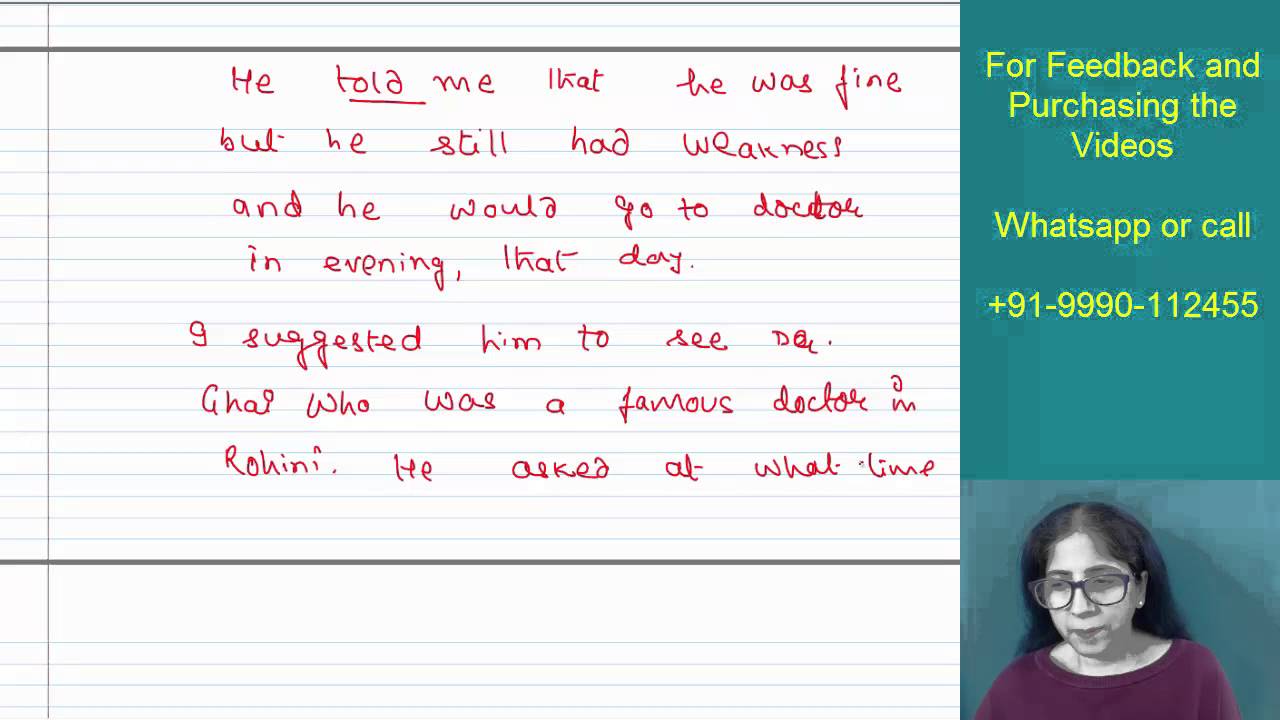 He told me that he was fine
but he still had weakness
and he would go to doctor
in evening, that day.
I suggested him to see Dr.
Ghai who was a famous doctor in
Rohini. He asked at what time
For Feedback and
Purchasing the
Videos
Whatsapp or call
+91-9990-112455